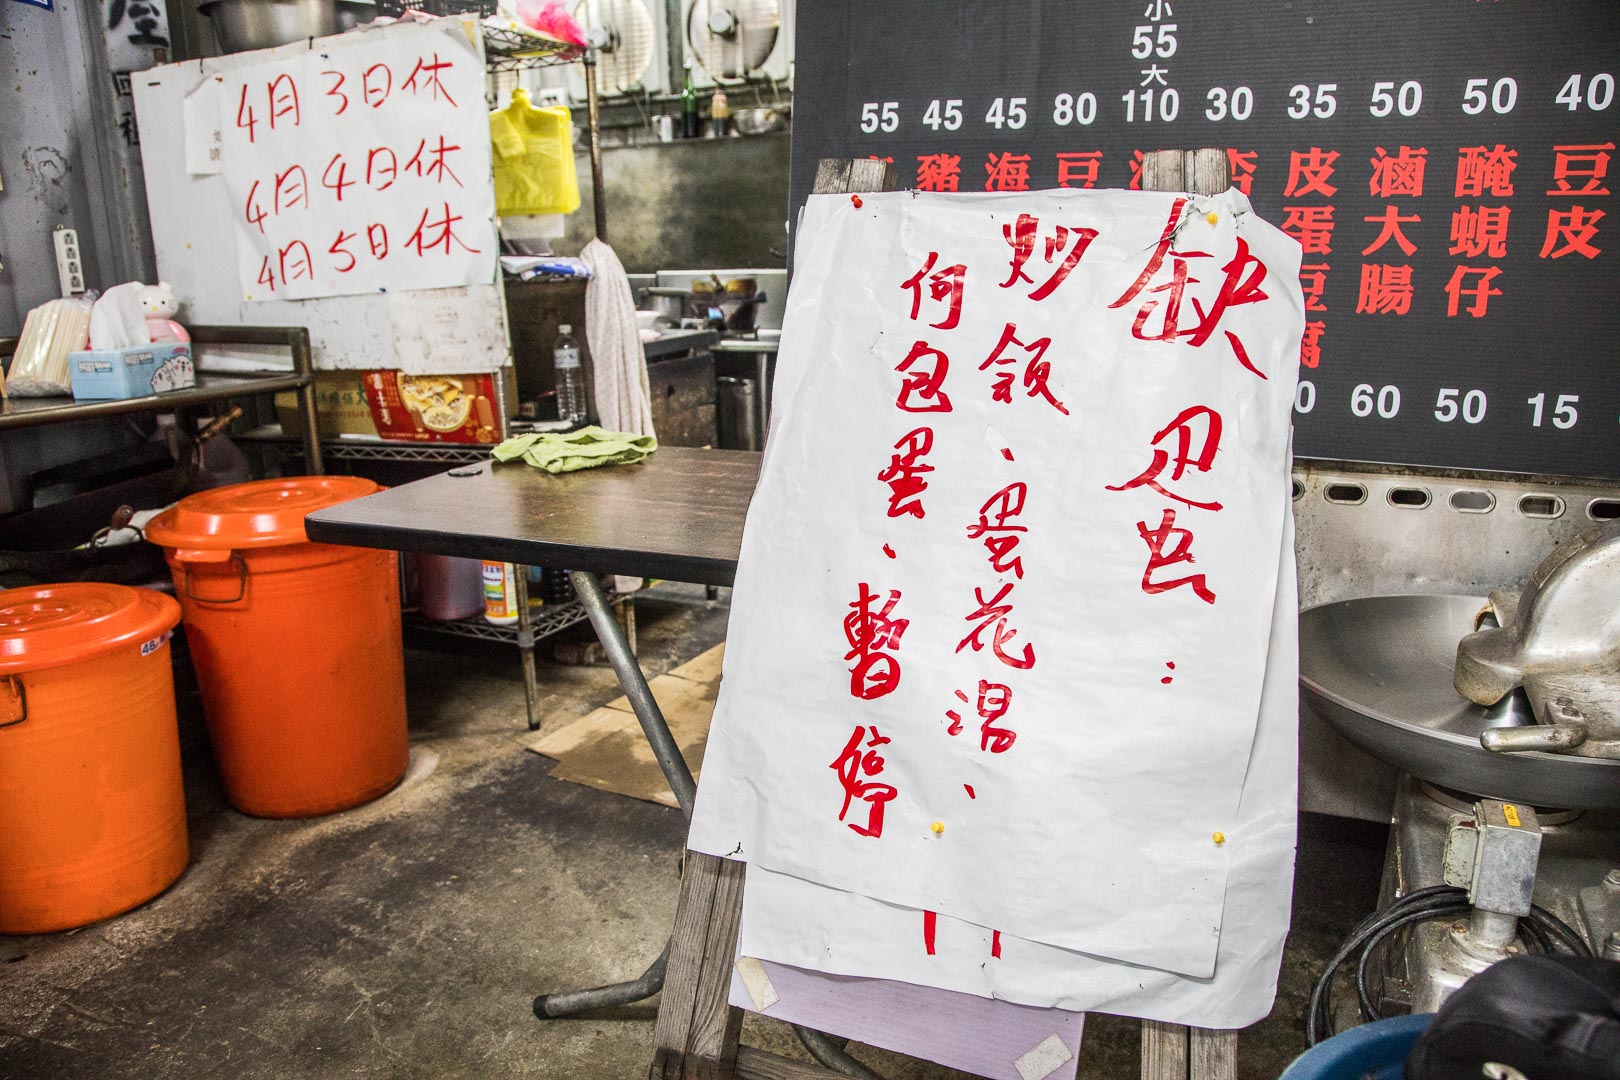 4月3日休
4月4日休
4月5日休
缺蛋:
炒飯、蛋花湯、
何包蛋、暫停
小
55
大
55 45 45 80 110 30 35 50 50 40
豬
海
豆
皮蛋豆腐
滷大腸
醃蜆仔
豆皮
60 50 15